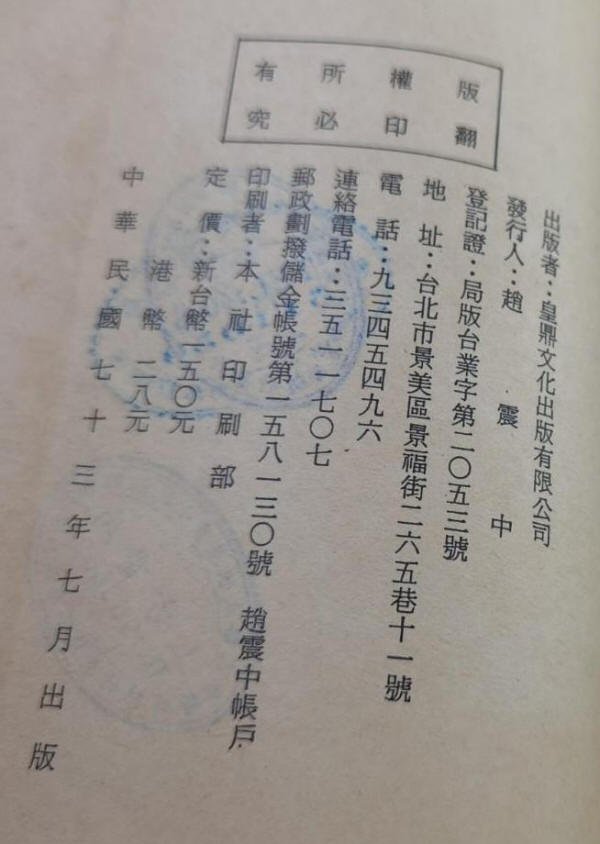 版權所有
翻印必究
出版者：皇鼎文化出版有限公司
發行人：趙震中
登記證：局版台業字第二〇五三號
地址：台北市景美區景福街二六五巷十一號
電話：九三四五四九六
連絡電話：三五一一七〇七
郵政劃撥儲金帳號第一五八一三〇號 趙震中帳戶
印刷者：本社印刷部
定價：新台幣一五〇元
港幣二八元
中華民國七十三年七月出版